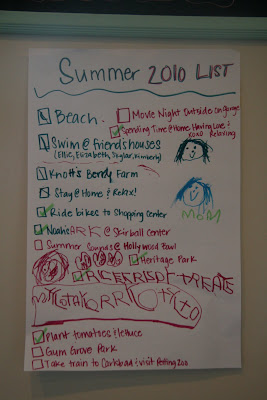 Summer 2010 LIST
Beach
Movie Night Outside on Garage
Spending Time @ Home Having Love &
XOXO Relaxing
Swim @ friends houses
(Ellie, Elizabeth, Skylar, Kimberly)
Knotts Berry Farm
Stay @ Home & Relax!
MOM
Ride bikes to Shopping Center
Noah's ARK @ Skirball Center
Summer Sounds @ Hollywood Bowl
Heritage Park
RICE KRISPY TREATS
Plant tomatoes & lettuce
Gum Grove Park
Take train to Carlsbad & visit Petting Zoo